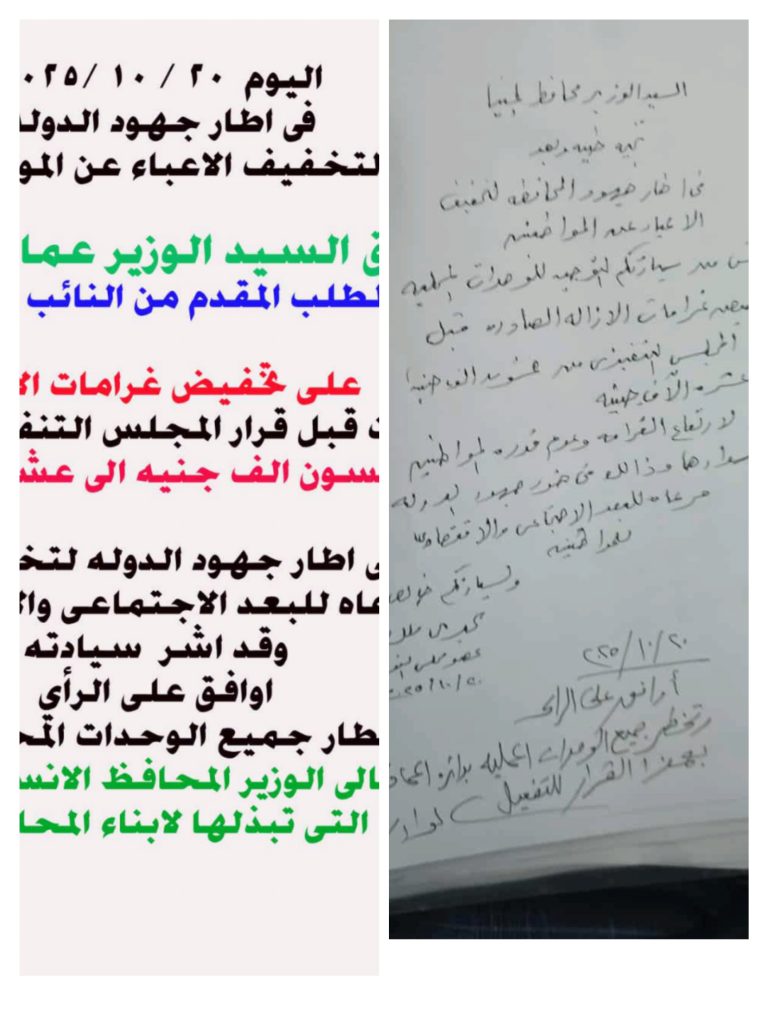 اليوم ٢٠ / ١٠ /٠٢٥
فى اطار جهود الدوله
لتخفيف الاعباء عن المو
ق السيد الوزير عما
لطلب المقدم من النائب
على تخفيض غرامات الا
ت قبل قرار المجلس التنف
سون الف جنيه الى عش
ى اطار جهود الدوله لتخ
عاه للبعد الاجتماعى وال
وقد اشر سيادته
اوافق على الرأي
طار جميع الوحدات المح
الى الوزير المحافظ الانس
التى تبذلها لابناء المحا
السيد الوزير محافظ المنيا
تحيه طيبه وبعد
فى اطار جهود المحافظه لتخفيف
الاعباء عن المواطنين
من سيادتكم التوجيه للوحدات المحليه
غرامات الازاله الصادره قبل
المجلس التنفيذى من خمسون الف جنيه
عشره آلاف جنيه
لارتفاع الغرامه وعدم قدره المواطنين
سدادها وذالك فى ضوء جهود الدوله
مرعاه للبعد الاجتماعى والاقتصادى
للمواطنين
ولسيادتكم
٢٠٢٥/١٠/٢٠
أوافق على الرأى
وتخطر جميع الوحدات المحليه بدائره
بهذا القرار للتفعيل